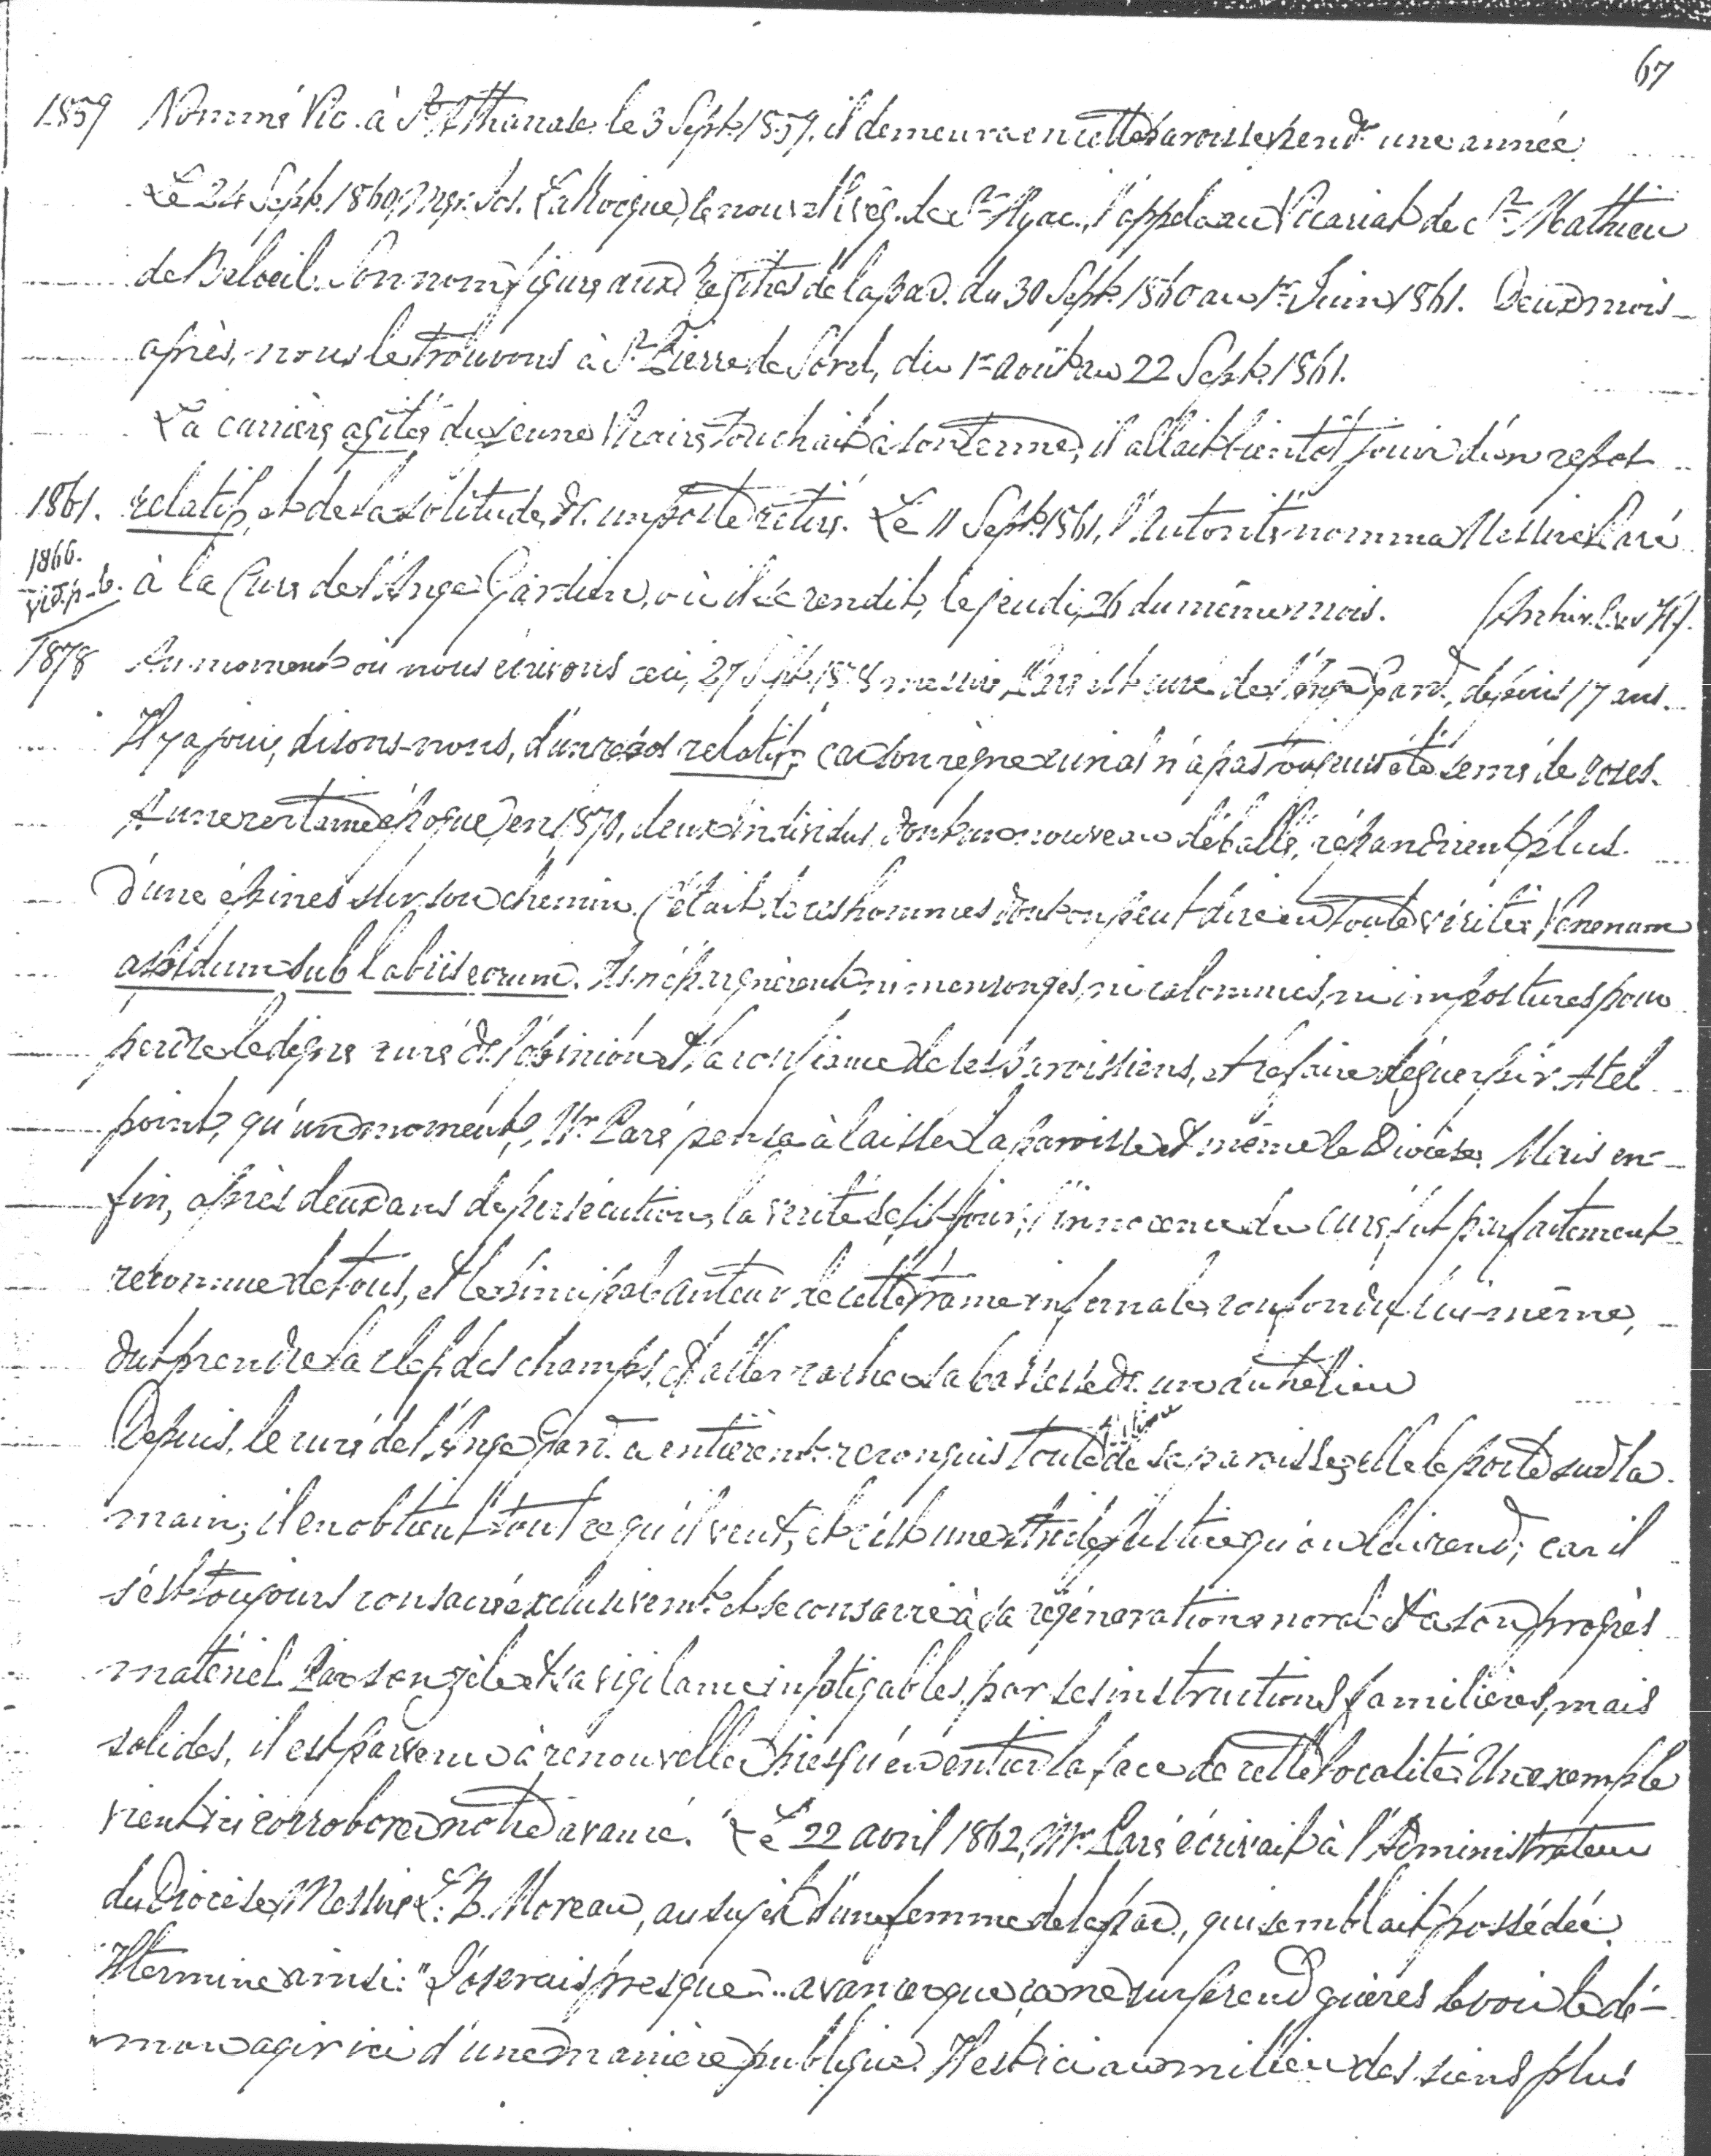 67
1859 Nommé Vic. à St Athanase le 3 Sept. 1859, il demeura en cette paroisse pendt une année.
Le 24 Sept. 1860, Mgr. Jos. LaRocque, le nouvel Evêq. de St Hyac., l'appela au Vicariat de St Mathieu
de Beloeil. Son nom figure aux Registres de la par. du 30 Sept. 1860 au 1er Juin 1861. Deux mois
après, nous le trouvons à St Pierre de Sorel, du 1er août au 22 Sept. 1861.
La carrière agitée du jeune Vicaire touchait à son terme, il allait bientôt jouir d'un repos
1861. relatif, et de la solitude ds. un poste retiré. Le 11 Sept. 1861, l'Autorité nomma Messire Paré
1866. vid. p. 6. à la Cure de l'Ange Gardien, où il se rendit, le jeudi, 26 du même mois. (Archiv.
1878 Au moment où nous écrivons ceci, 27 Sept. 1878 messire Paré est curé de l'Ange Gard. depuis 17 ans.
Il y a joui, disons-nous, d'un repos relatif; car son règne curial n'a pas toujours été semé de roses.
A une certaine époque, en 1870, deux individus, dont un nouveau déballé, répandirent plus
d'une épines sur son chemin. C'était de ces hommes dont on peut dire en toute vérité: Venenum
aspidum sub labiis eorum. Ils n'épargnèrent ni mensonges, ni calomnies, ni impostures pour
perdre le digne curé ds. l'opinion et la confiance de ses paroissiens, et le faire déguerpir. A tel
point, qu'un moment, Mr. Paré pensa à laisser la paroisse et même le Diocèse. Mais en-
fin, après deux ans de persécution, la vérité se fit jour, l'innocence du curé fut parfaitement
reconnue de tous, et le principal auteur de cette trame infernale, confondu lui-même,
dut prendre la clef des champs, et aller cacher sa bassesse ds. un autre lieu
Depuis, le curé de l'Ange Gard. a entièremt. reconquis toute l'estime de sa paroisse; elle le porte sur la
main; il en obtient tout ce qu'il veut; et c'est une stricte justice qu'on lui rend; car il
s'est toujours consacré exclusivemt. et se consacre à sa régénération morale et à son progrès
matériel. Par son zèle et sa vigilance infatigables, par ses instructions familières, mais
solides, il est parvenu à renouveller presqu'en entier la face de cette localité. Un exemple
vient ici corroborer notre avancé. Le 22 avril 1862, Mr. Paré écrivait à l'Administrateur
du Diocèse, Messire L. Z. Moreau, au sujet d'une femme de la par., qui semblait possédée.
Il termine ainsi: "J'oserais presque... avancer que ça me surprend guères de voir le dé-
mon agir ici d'une manière publique. Il est ici au milieu des siens plus